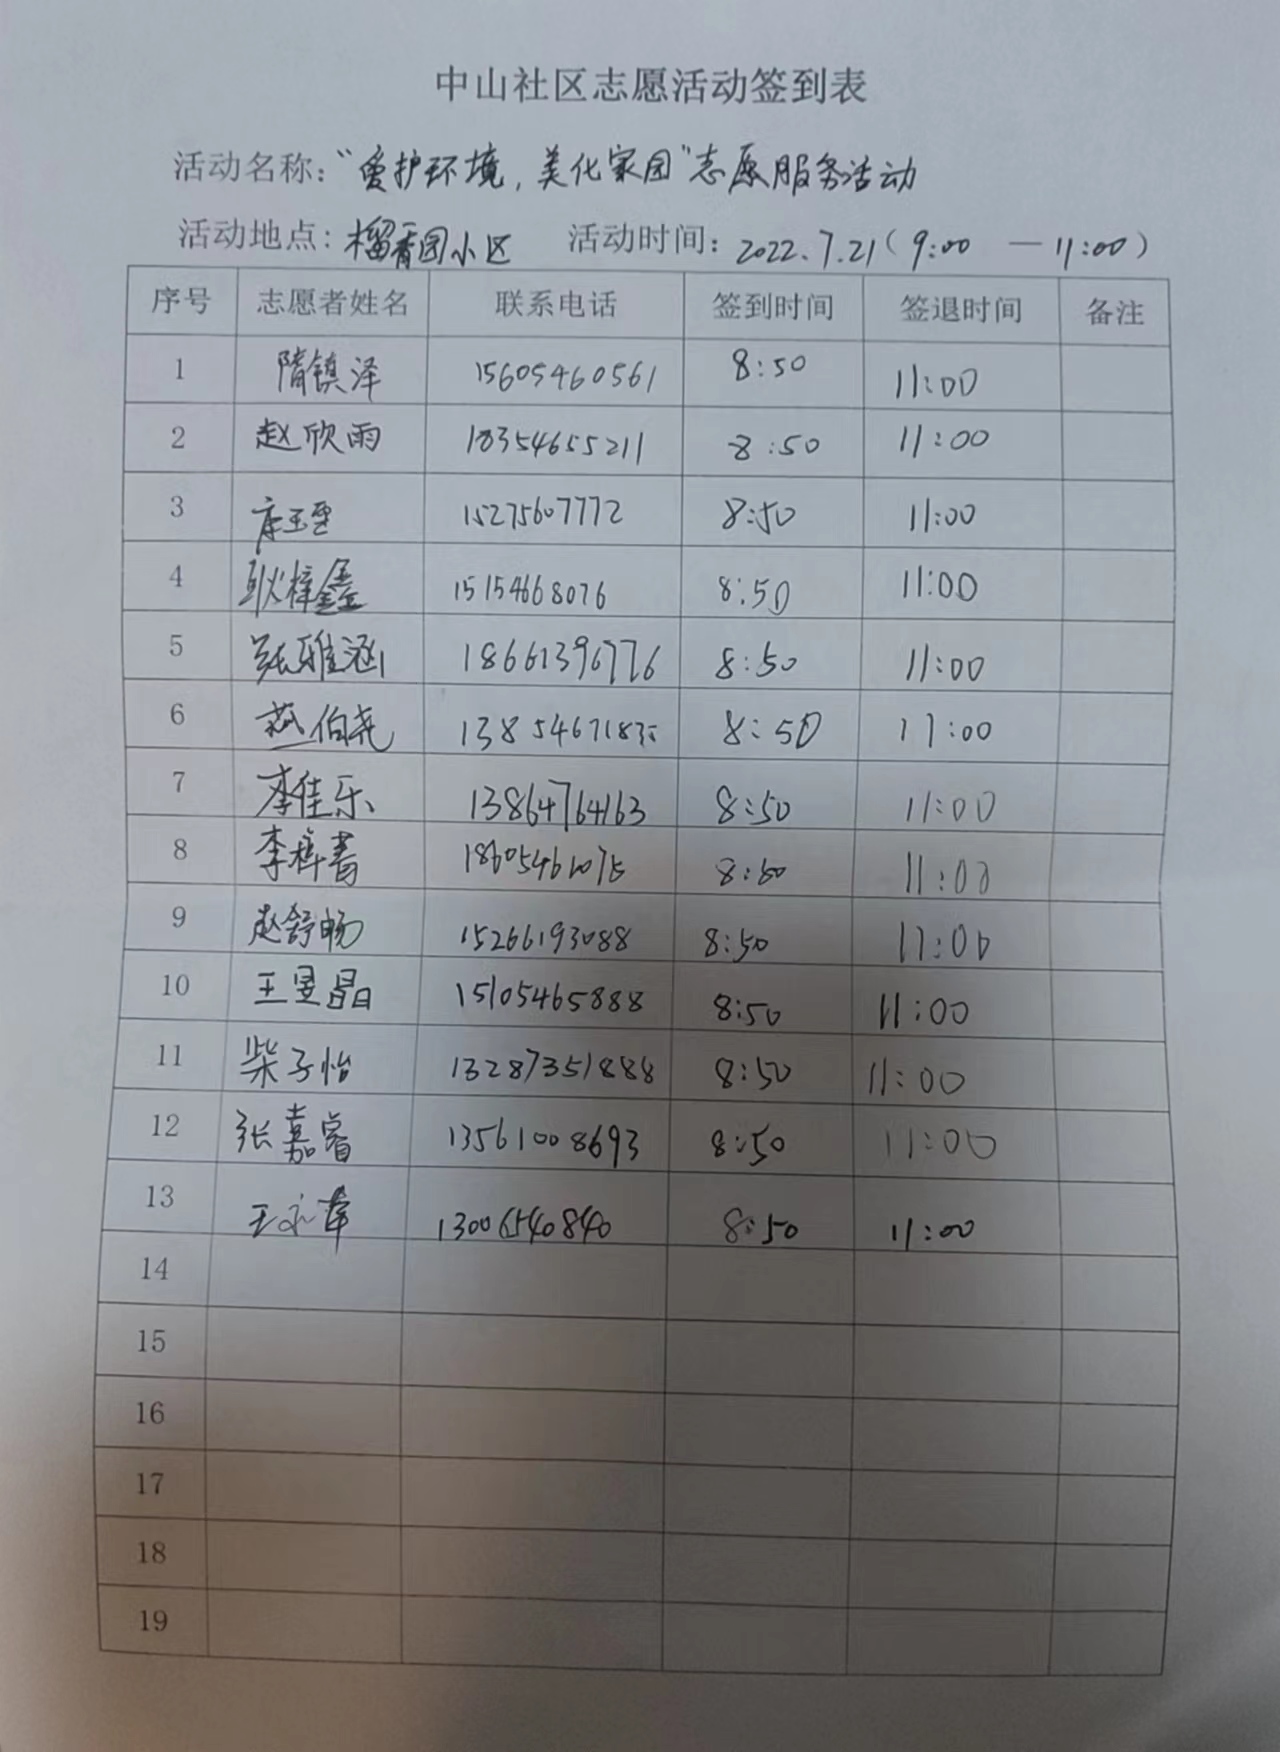 中山社区志愿活动签到表
活动名称：“爱护环境，美化家园”志愿服务活动
活动地点：榴香园小区 活动时间：2022.7.21（9:00 — 11:00）
序号 志愿者姓名 联系电话 签到时间 签退时间 备注
1 隋镇泽 15605460561 8:50 11:00
2 赵欣雨 18354655211 8:50 11:00
3 15275607772 8:50 11:00
4 耿梓鑫 15154668076 8:50 11:00
5 张雅涵 18661396776 8:50 11:00
6 燕伯尧 8:50 11:00
7 李佳乐 13864764163 8:50 11:00
8 李梓菁 8:50 11:00
9 赵舒畅 15266193088 8:50 11:00
10 王昱晶 15105465888 8:50 11:00
11 柴子怡 13287351888 8:50 11:00
12 张嘉睿 13561008693 8:50 11:00
13 13006540840 8:50 11:00
14
15
16
17
18
19